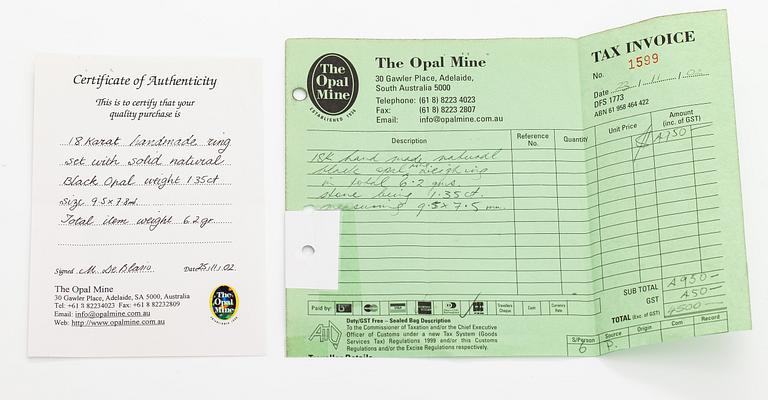 Certificate of Authenticity
This is to certify that your
quality purchase is
18 Karat handmade ring
set with solid natural
Black Opal weight 1.35ct
Size 9.5 x 7.8ml
Total item weight 6.2 gr.
Signed M. De Blasio Date 25.11.02
The Opal Mine
30 Gawler Place, Adelaide, SA 5000, Australia
Tel: +61 8 82234023 Fax: +61 8 82232809
Email: info@opalmine.com.au
Web: http://www.opalmine.com.au
The
Opal
Mine
The
Opal
Mine
ESTABLISHED 1976
The Opal Mine
30 Gawler Place, Adelaide,
South Australia 5000
Telephone: (61 8) 8223 4023
Fax: (61 8) 8223 2807
Email: info@opalmine.com.au
TAX INVOICE
No. 1599
Date 11
DFS 1773
ABN 61 958 464 422
Description
Reference
No.
Quantity
Unit Price
Amount
(inc. of GST)
18K hand made natural
black opal ring weighing
in total 6.2 gms.
stone being 1.35ct.
measuring 9.5 x 7.5 mm
SUB TOTAL A950-
GST A50-
TOTAL (Exc. of GST)
Paid by:
Travellers
Cheques
Cash
Currency
Rate
Duty/GST Free – Sealed Bag Description
To the Commissioner of Taxation and/or the Chief Executive
Officer of Customs under a new Tax System (Goods
Services Tax) Regulations 1999 and/or this Customs
Regulations and/or the Excise Regulations respectively.
Traveller Details
S/Person
6
Source
P.
Origin
Com
Record